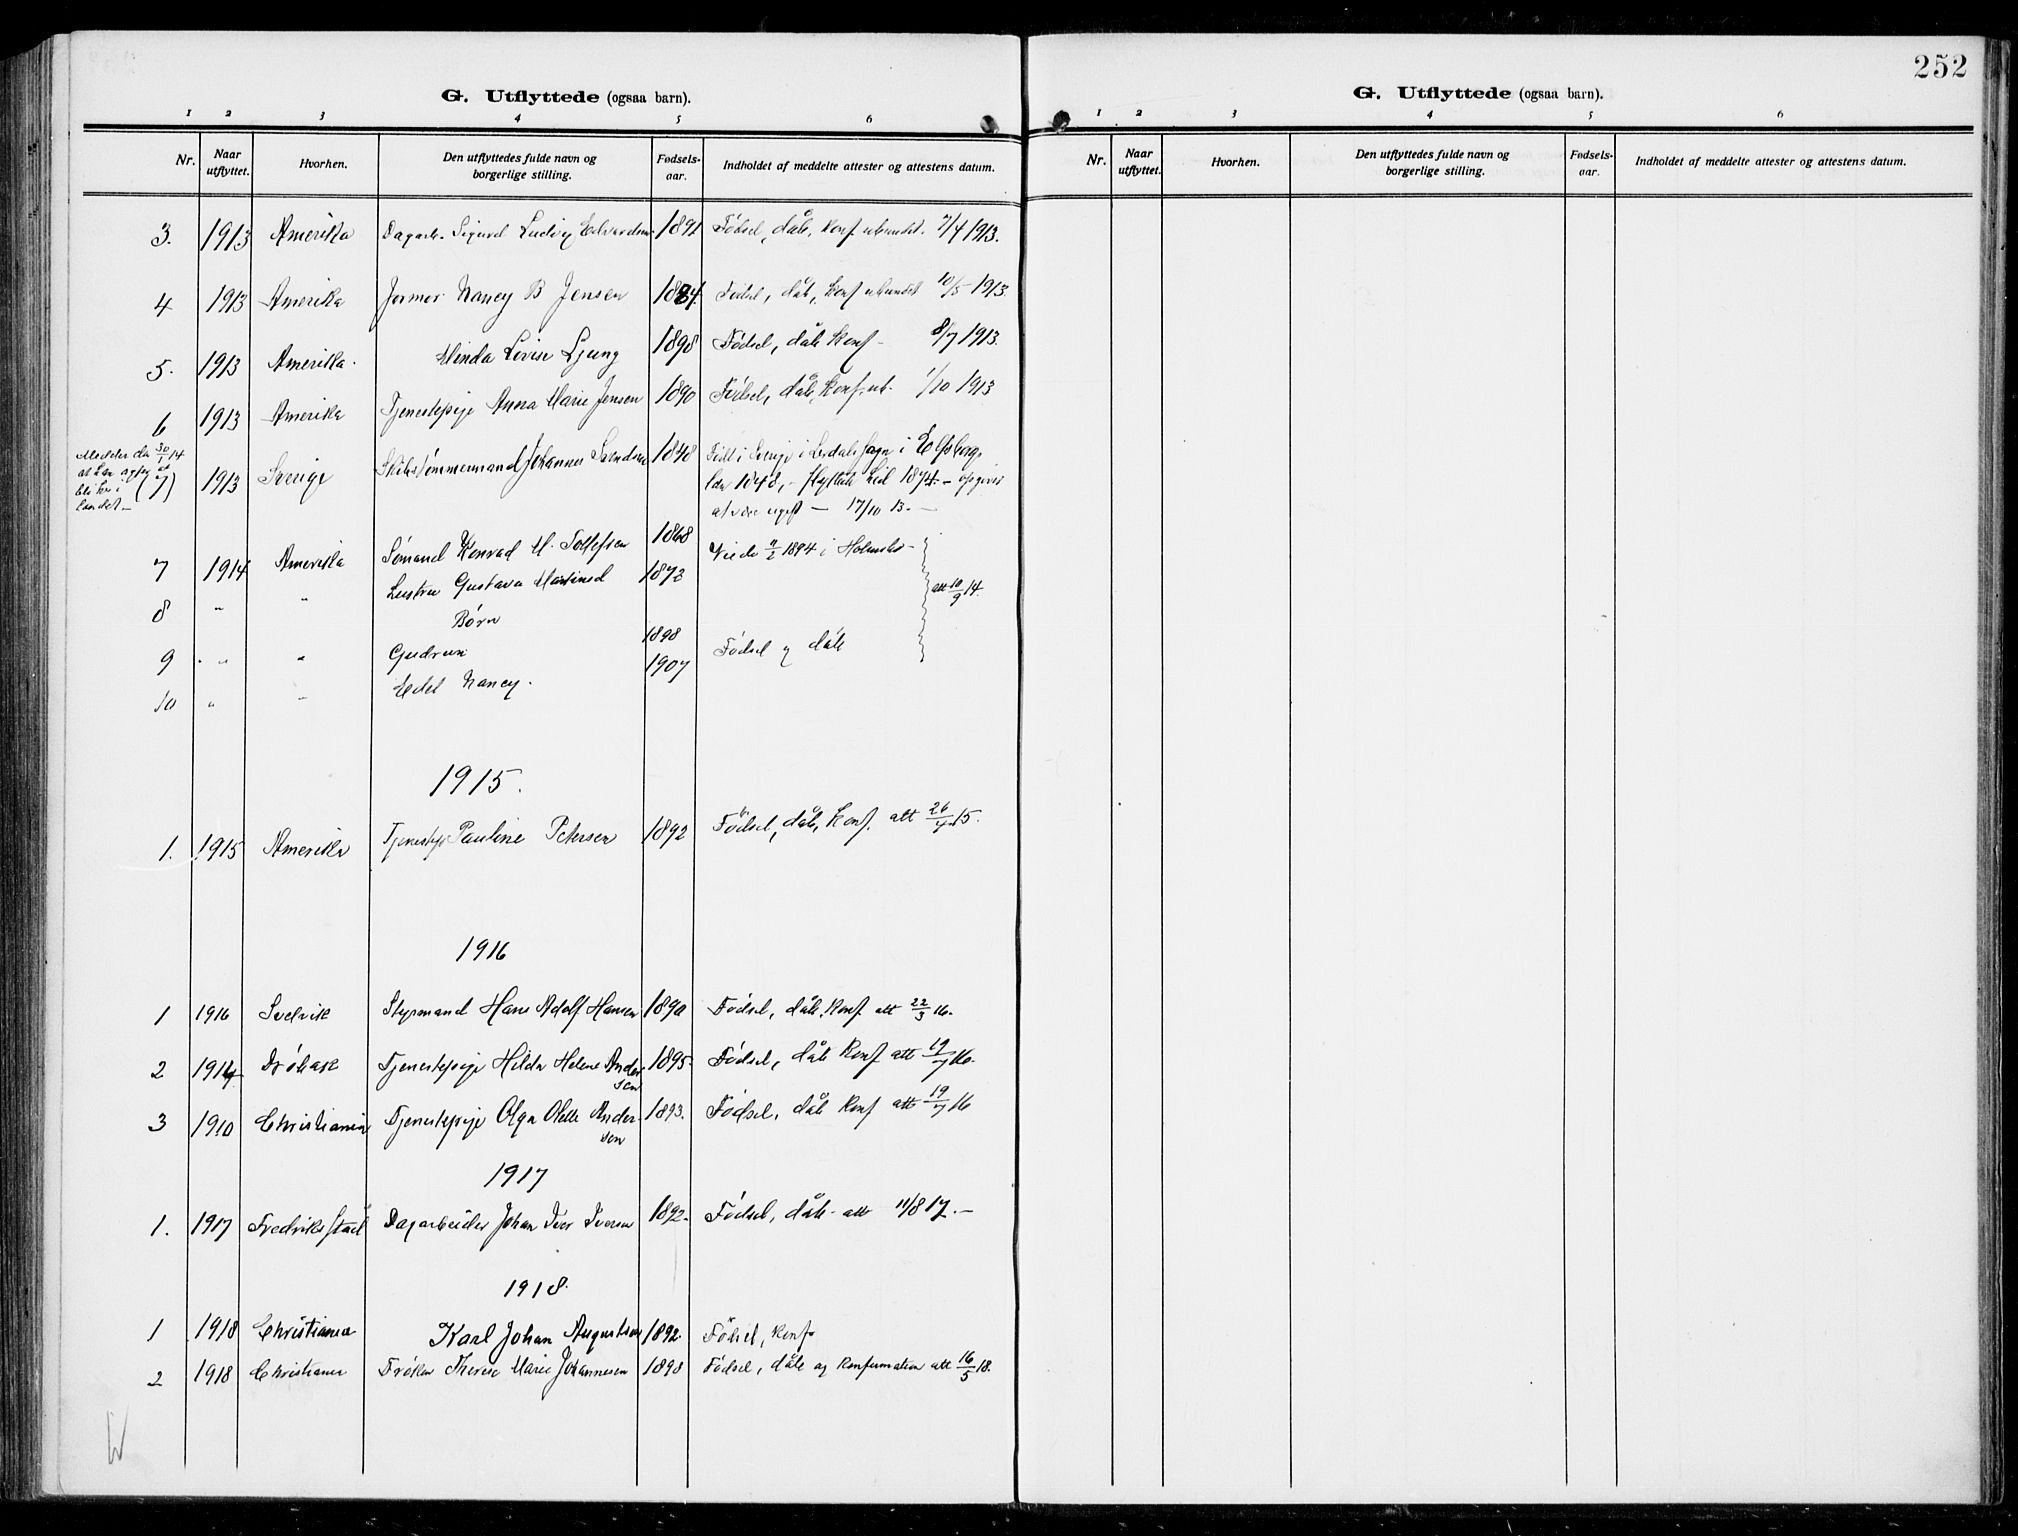 252
G. Utflyttede (ogsaa barn).
1 2 3 4 5 6
Nr. Naar utflyttet. Hvorhen. Den utflyttedes fulde navn og borgerlige stilling. Fødsels-aar. Indholdet af meddelte attester og attestens datum.
3. 1913 Amerika Dagarb. Sigurd Ludvig Edvardsen 1891 Fødsel, dåb, konf. utsundet. 7/4 1913.
4 1913 Amerika Jormor Nancy B Jensen 1884. Fødsel, dåb, konf 10/5 1913.
5. 1913 Amerika. Minda Lovise Ljung 1898 Fødsel, dåb konf - 8/7 1913.
6 1913 Amerika Tjenestepige Anna Marie Jensen 1890 Fødsel, dåb, konf. 1/10 1913
Melder da 30/1 14
at han agter at
bli her i (7) 1913 Sverige Skibstømmermand Johannes Svendsen 1848 Født i Sverige i Lerdals sogn i Elfsborgs
landet - län 1848, - flyttede hid 1874 - opgiver
at være ugift - 17/10 13. -
7 1914 Amerika Sømand Konrad M. Tollefsen 1868 Viede 1894 i Holmsbo -
8 " " Hustru Gustava Martinsd 1872 att 10/9 14.
Børn
9 " " Gudrun 1898 Fødsel og dåb
10 " " Edel Nancy. 1907
1915.
1. 1915 Amerika Tjenestepi Pauline Petersen 1892 Fødsel, dåb, konf. att 26/4 15.
1916
1 1916 Svelvik Styrmand Hans Adolf Hansen 1890 Fødsel, dåb, konf att 22/3 16.
2 1914 Drøbak Tjenestepige Hilda Helene Ander 1895 Fødsel, dåb konf att 19/7 16.
sen
3 1910 Christiania Tjenestepige Olga Olette Ander- 1893. Fødsel, dåb konf att 19/7 16
sen
1917
1. 1917 Fredriksstad Dagarbeider Johan Iver Iversen 1892. Fødsel, dåb - att 11/8 17. -
1918.
1 1918 Christiania Karl Johan Augustsen 1892. Fødsel, konf
2 1918 Christiania Frøken Therese Marie Johannesen 1898 Fødsel, dåb og konfirmation att 16/5 18.
G. Utflyttede (ogsaa barn).
1 2 3 4 5 6
Nr. Naar utflyttet. Hvorhen. Den utflyttedes fulde navn og borgerlige stilling. Fødsels-aar. Indholdet af meddelte attester og attestens datum.